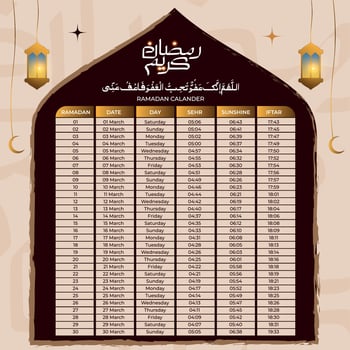 رمضان
كريم
اللهم إنك عفو تحب العفو فاعف عني
RAMADAN CALANDER
RAMADAN DATE DAY SEHR SUNSHINE IFTAR
01 01 March Saturday 05:06 06:43 17:43
02 02 March Sunday 05:04 06:41 17:45
03 03 March Monday 05:02 06:39 17:47
04 04 March Tuesday 05:00 06:37 17:48
05 05 March Wednesday 04:57 06:34 17:50
06 06 March Thursday 04:55 06:32 17:52
07 07 March Friday 04:53 06:30 17:54
08 08 March Saturday 04:51 06:28 17:55
09 09 March Sunday 04:49 06:26 17:57
10 10 March Monday 04:46 06:23 17:59
11 11 March Tuesday 04:44 06:21 18:01
12 12 March Wednesday 04:42 06:19 18:02
13 13 March Thursday 04:39 06:16 18:04
14 14 March Friday 04:37 06:14 18:06
15 15 March Saturday 04:35 06:12 18:08
16 16 March Sunday 18:09
17 17 March Monday 18:11
18 18 March Tuesday 04:28 06:05 18:13
19 19 March Wednesday 06:03 18:14
20 20 March Thursday 06:00 18:16
21 21 March Friday 05:58 18:18
22 22 March Saturday 04:21 05:56 18:19
23 23 March Sunday 04:19 05:54 18:21
24 24 March Monday 04:16 18:23
25 25 March Tuesday 04:14 05:49 18:25
26 26 March Wednesday 04:13 05:47 18:26
27 27 March Thursday 04:11 05:45 18:28
28 28 March Friday 04:09 05:42 18:30
29 29 March Saturday 04:07 05:40
30 30 March Sunday 05:38 18:33